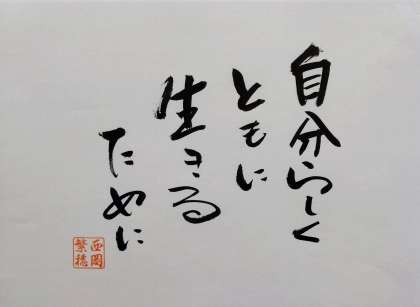 自分らしく
ともに
生きる
ために
西岡
繁穂